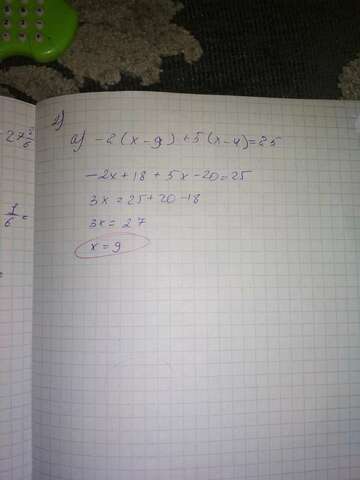 2)
a) -2(x-9)+5(x-4)=25
-2x+18+5x-20=25
3x=25+20-18
3x=27
x=9